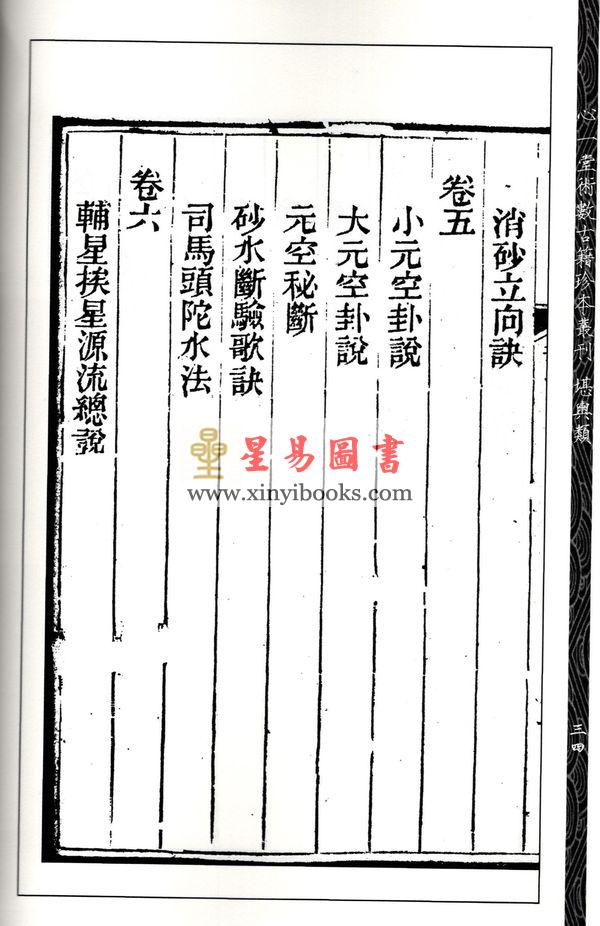 心一堂術數古籍珍本叢刊 堪輿類
三四
消砂立向訣
卷五
小元空卦說
大元空卦說
元空秘斷
砂水斷驗歌訣
司馬頭陀水法
卷六
輔星挨星源流總說
星易圖書
www.xinyibooks.com